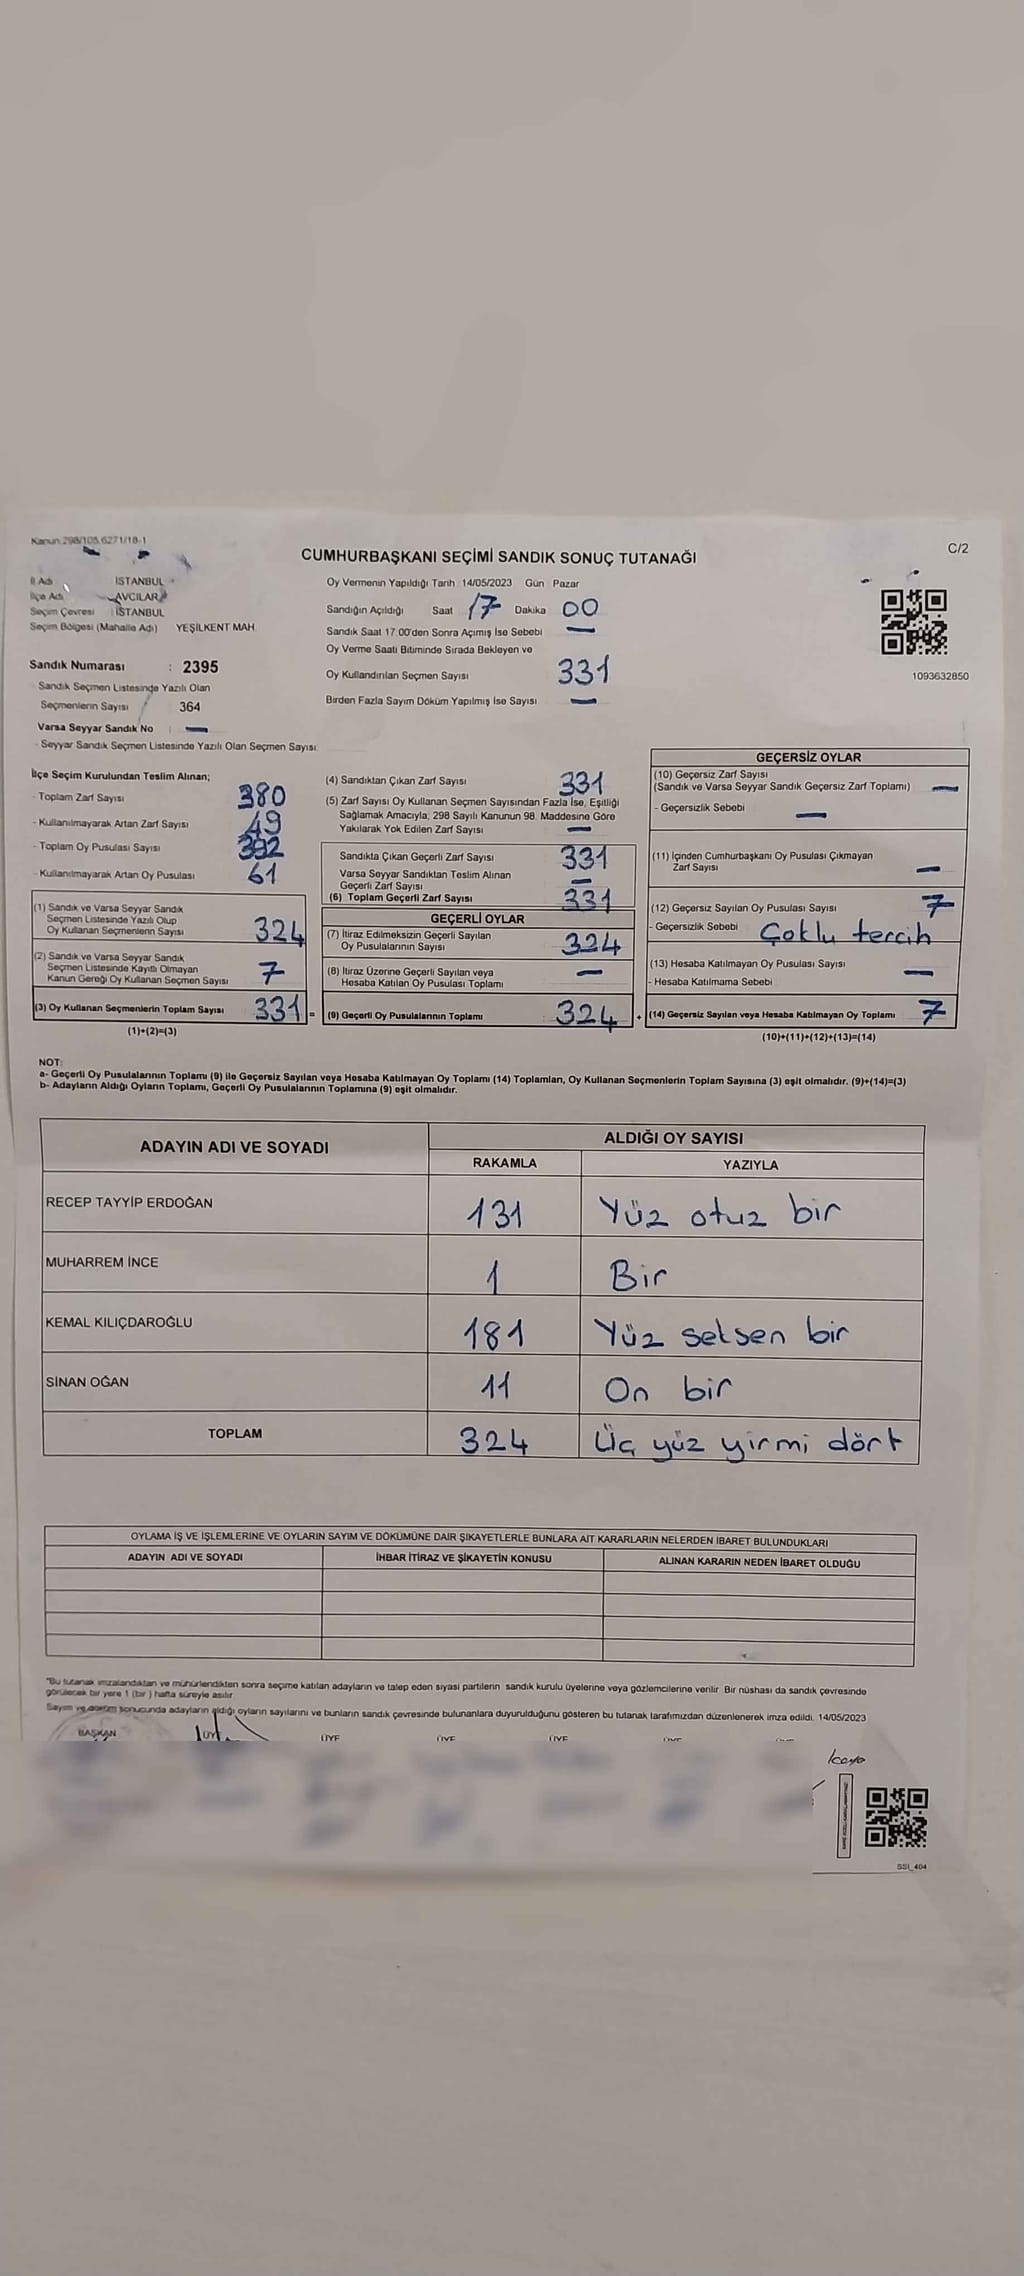 Kanun.298/105,6271/18-1
C/2
CUMHURBAŞKANI SEÇİMİ SANDIK SONUÇ TUTANAĞI
İl Adı İSTANBUL
İlçe Adı AVCILAR
Seçim Çevresi İSTANBUL
Seçim Bölgesi (Mahalle Adı) YEŞİLKENT MAH.
Sandık Numarası : 2395
- Sandık Seçmen Listesinde Yazılı Olan
Seçmenlerin Sayısı 364
Varsa Seyyar Sandık No : —
- Seyyar Sandık Seçmen Listesinde Yazılı Olan Seçmen Sayısı:
Oy Vermenin Yapıldığı Tarih 14/05/2023 Gün Pazar
Sandığın Açıldığı Saat 17 Dakika 00
Sandık Saat 17.00'den Sonra Açımış İse Sebebi —
Oy Verme Saati Bitiminde Sırada Bekleyen ve
Oy Kullandırılan Seçmen Sayısı 331
Birden Fazla Sayım Döküm Yapılmış İse Sayısı —
1093632850
İlçe Seçim Kurulundan Teslim Alınan;
- Toplam Zarf Sayısı 380
- Kullanılmayarak Artan Zarf Sayısı 49
- Toplam Oy Pusulası Sayısı 392
- Kullanılmayarak Artan Oy Pusulası 61
(1) Sandık ve Varsa Seyyar Sandık
Seçmen Listesinde Yazılı Olup
Oy Kullanan Seçmenlerin Sayısı 324
(2) Sandık ve Varsa Seyyar Sandık
Seçmen Listesinde Kayıtlı Olmayan
Kanun Gereği Oy Kullanan Seçmen Sayısı 7
(3) Oy Kullanan Seçmenlerin Toplam Sayısı 331 =
(1)+(2)=(3)
(4) Sandıktan Çıkan Zarf Sayısı 331
(5) Zarf Sayısı Oy Kullanan Seçmen Sayısından Fazla İse, Eşitliği
Sağlamak Amacıyla; 298 Sayılı Kanunun 98. Maddesine Göre
Yakılarak Yok Edilen Zarf Sayısı —
Sandıkta Çıkan Geçerli Zarf Sayısı 331
Varsa Seyyar Sandıktan Teslim Alınan
Geçerli Zarf Sayısı —
(6) Toplam Geçerli Zarf Sayısı 331
GEÇERLİ OYLAR
(7) İtiraz Edilmeksizin Geçerli Sayılan
Oy Pusulalarının Sayısı 324
(8) İtiraz Üzerine Geçerli Sayılan veya
Hesaba Katılan Oy Pusulası Toplamı —
(9) Geçerli Oy Pusulalarının Toplamı 324 +
GEÇERSİZ OYLAR
(10) Geçersiz Zarf Sayısı
(Sandık ve Varsa Seyyar Sandık Geçersiz Zarf Toplamı) —
- Geçersizlik Sebebi —
(11) İçinden Cumhurbaşkanı Oy Pusulası Çıkmayan
Zarf Sayısı —
(12) Geçersiz Sayılan Oy Pusulası Sayısı 7
- Geçersizlik Sebebi Çoklu tercih
(13) Hesaba Katılmayan Oy Pusulası Sayısı —
- Hesaba Katılmama Sebebi
(14) Geçersiz Sayılan veya Hesaba Katılmayan Oy Toplamı 7
(10)+(11)+(12)+(13)=(14)
NOT:
a- Geçerli Oy Pusulalarının Toplamı (9) ile Geçersiz Sayılan veya Hesaba Katılmayan Oy Toplamı (14) Toplamları, Oy Kullanan Seçmenlerin Toplam Sayısına (3) eşit olmalıdır. (9)+(14)=(3)
b- Adayların Aldığı Oyların Toplamı, Geçerli Oy Pusulalarının Toplamına (9) eşit olmalıdır.
ADAYIN ADI VE SOYADI ALDIĞI OY SAYISI
RAKAMLA YAZIYLA
RECEP TAYYİP ERDOĞAN 131 Yüz otuz bir
MUHARREM İNCE 1 Bir
KEMAL KILIÇDAROĞLU 181 Yüz seksen bir
SİNAN OĞAN 11 On bir
TOPLAM 324 Üç yüz yirmi dört
OYLAMA İŞ VE İŞLEMLERİNE VE OYLARIN SAYIM VE DÖKÜMÜNE DAİR ŞİKAYETLERLE BUNLARA AİT KARARLARIN NELERDEN İBARET BULUNDUKLARI
ADAYIN ADI VE SOYADI İHBAR İTİRAZ VE ŞİKAYETİN KONUSU ALINAN KARARIN NEDEN İBARET OLDUĞU
"Bu tutanak imzalandıktan ve mühürlendikten sonra seçime katılan adayların ve talep eden siyasi partilerin sandık kurulu üyelerine veya gözlemcilerine verilir. Bir nüshası da sandık çevresinde
görülecek bir yere 1 (bir) hafta süreyle asılır.
Sayım ve döküm sonucunda adayların aldığı oyların sayılarını ve bunların sandık çevresinde bulunanlara duyurulduğunu gösteren bu tutanak tarafımızdan düzenlenerek imza edildi. 14/05/2023
BAŞKAN ÜYE ÜYE ÜYE ÜYE
SSI_404